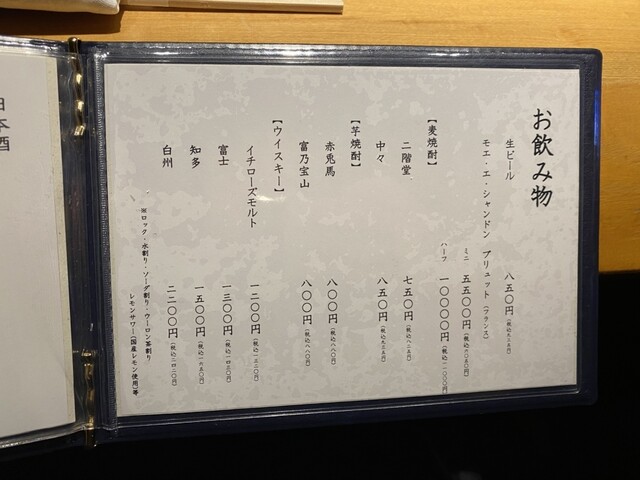 お飲み物
生ビール 八五〇円(税込九三五円)
モエ・エ・シャンドン ブリュット(フランス)
ミニ 五五〇〇円(税込六〇五〇円)
ハーフ 一〇〇〇〇円(税込一一〇〇〇円)
【麦焼酎】
二階堂 七五〇円(税込八二五円)
中々 八五〇円(税込九三五円)
【芋焼酎】
赤兎馬 八〇〇円(税込八八〇円)
富乃宝山 八〇〇円(税込八八〇円)
【ウイスキー】
イチローズモルト 一二〇〇円(税込一三二〇円)
富士 一三〇〇円(税込一四三〇円)
知多 一五〇〇円(税込一六五〇円)
白州 二二〇〇円(税込二四二〇円)
※ロック・水割り・ソーダ割り・ウーロン茶割り
レモンサワー(国産レモン使用)等
日本酒